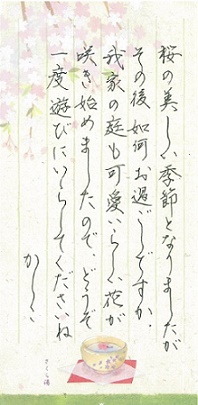 桜の美しい季節となりましたが
その後如何お過ごしですか.
我家の庭も可愛いらしい花が
咲き始めましたので、どうぞ
一度遊びにいらしてくださいね
かしこ
さくら湯